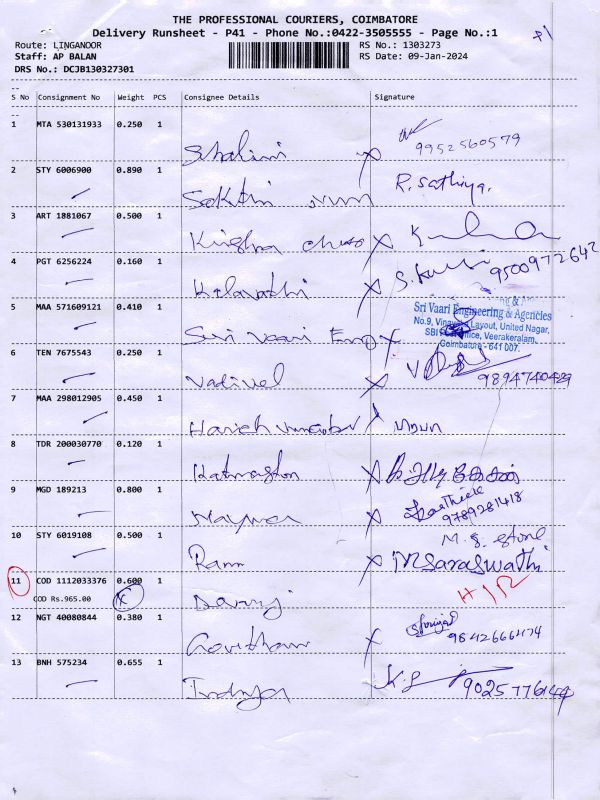 THE PROFESSIONAL COURIERS, COIMBATORE
Delivery Runsheet - P41 - Phone No.:0422-3505555 - Page No.:1
Route: LINGANOOR RS No.: 1303273
Staff: AP BALAN RS Date: 09-Jan-2024
DRS No.: DCJB130327301
S No Consignment No Weight PCS Consignee Details Signature
1 MTA 530131933 0.250 1
Shalini 9952560579
2 STY 6006900 0.890 1
Sakthi R. Sathiya.
3 ART 1881067 0.500 1
Krishna
4 PGT 6256224 0.160 1
Kalavathi 9500972642
5 MAA 571609121 0.410 1
Sri Vaari Engineering & Agencies
No.9, Layout, United Nagar,
Veerakeralam,
Coimbatore - 641 007.
Sri Vaari Eng
6 TEN 7675543 0.250 1
Vadivel 9894740429
7 MAA 298012905 0.450 1
Harish
8 TDR 200030770 0.120 1
9 MGD 189213 0.800 1
Karthick
9789281418
10 STY 6019108 0.500 1
M.S. Stone
Ram M Saraswathi
11 COD 1112033376 0.600 1
COD Rs.965.00
12 NGT 40080844 0.380 1
9842666474
13 BNH 575234 0.655 1
9025776144